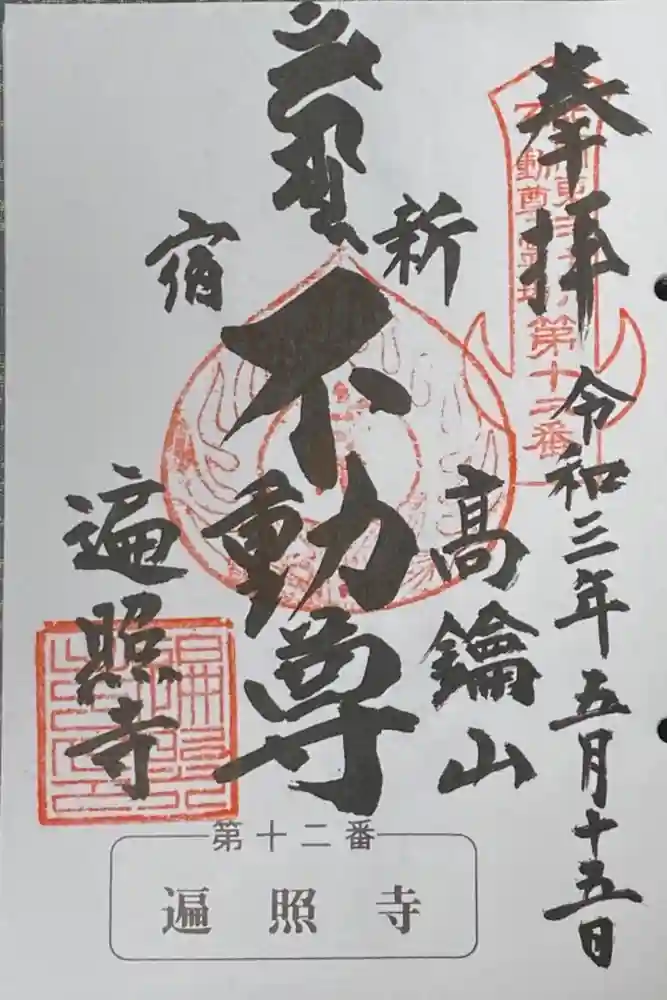 奉拝
令和三年五月十五日
第十二番
新宿
不動尊
高鑰山
遍照寺
第十二番
遍照寺